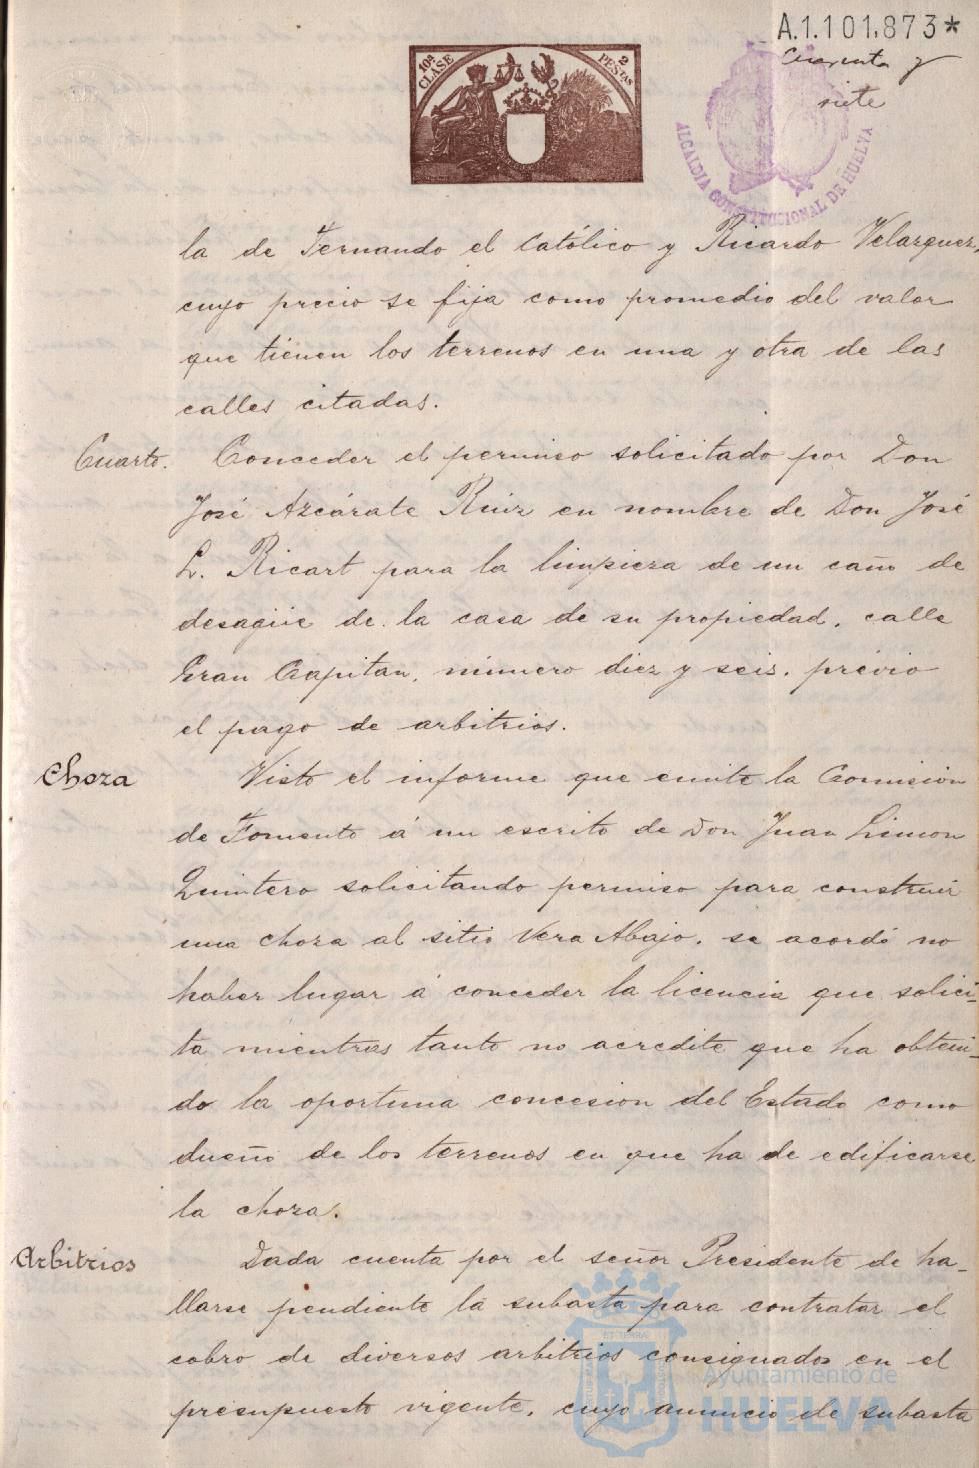 A.1.101.873*
Cuarenta y
siete
10ª CLASE
2 PESTAS
ALCALDIA CONSTITUCIONAL DE HUELVA
la de Fernando el Católico y Ricardo Velazquez,
cuyo precio se fija como promedio del valor
que tienen los terrenos en una y otra de las
calles citadas.
Cuarto. Conceder el permiso solicitado por Don
José Azcárate Ruiz en nombre de Don José
L. Ricart para la limpieza de un caño de
desagüe de la casa de su propiedad, calle
Gran Capitan, número diez y seis, prévio
el pago de arbitrios.
Choza Visto el informe que emite la Comision
de Fomento á un escrito de Don Juan Limon
Quintero solicitando permiso para construir
una choza al sitio Vera Abajo, se acordó no
haber lugar á conceder la licencia que solici-
ta mientras tanto no acredite que ha obteni-
do la oportuna concesion del Estado como
dueño de los terrenos en que ha de edificarse
la choza.
Arbitrios Dada cuenta por el señor Presidente de ha-
llarse pendiente la subasta para contratar el
cobro de diversos arbitrios consignados en el
presupuesto vigente, cuyo anuncio de subasta
Ayuntamiento de
HUELVA